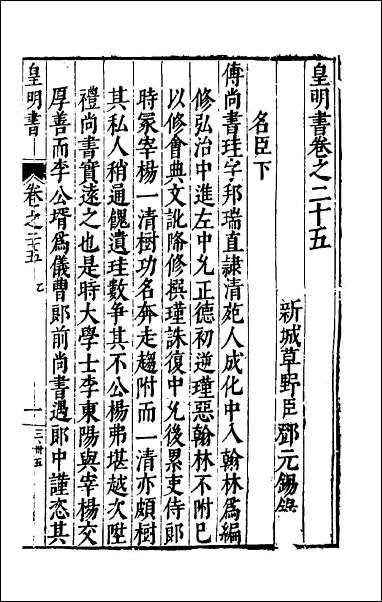 皇明書卷之二十五
新城草野臣鄧元錫錄
名臣下
傅尚書珪字邦瑞直隸清苑人成化中入翰林爲編
修弘治中進左中允正德初逆瑾惡翰林不附已
以修會典文訛降修撰瑾誅復中允後累吏侍郎
時冢宰楊一清樹功名奔走趨附而一清亦頗樹
其私人稍通餽遺珪數爭其不公楊弗堪越次陞
禮尚書實遠之也是時大學士李東陽與宰楊交
厚善而李公壻爲儀曹郎前尚書遇郎中謹恣其
皇明書
卷之二十五
乙
一
三卅五